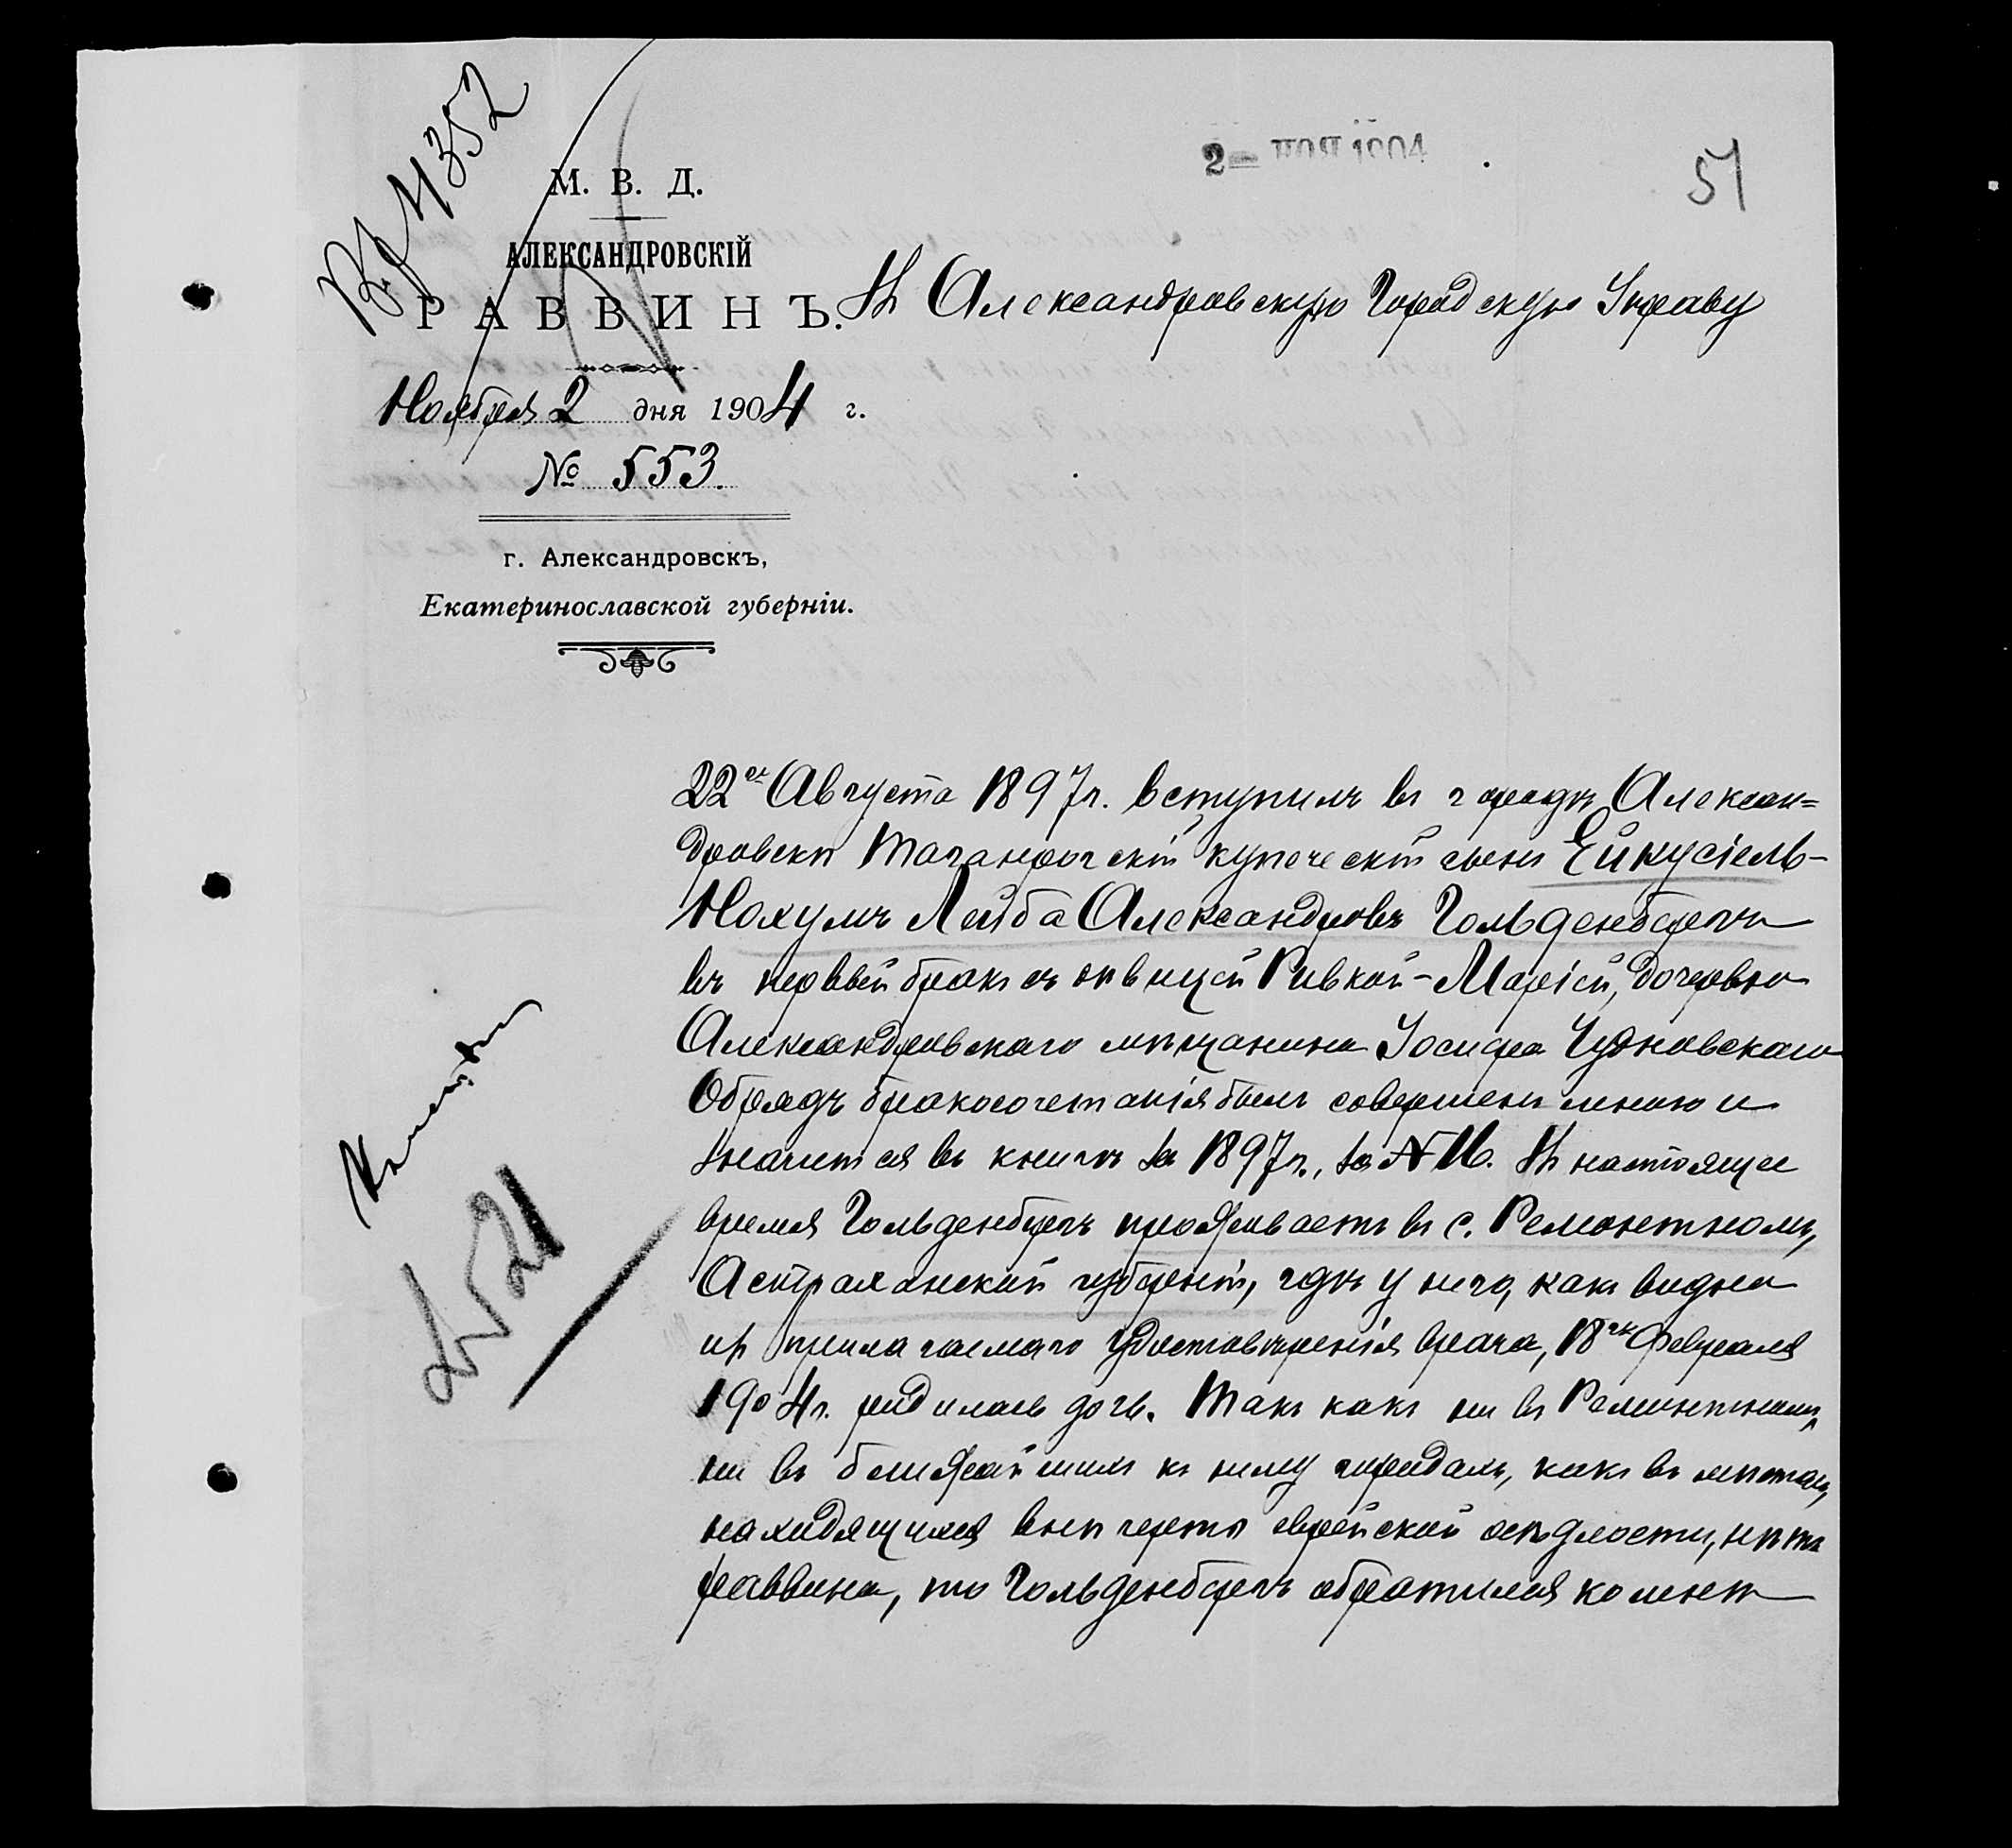 Вх. № 4352
2 - НОЯ 1904
51
М. В. Д.
АЛЕКСАНДРОВСКІЙ
РАВВИНЪ.
Въ Александровскую Городскую Управу
Ноября 2 дня 1904 г.
№ 553.
г. Александровскъ,
Екатеринославской губерніи.
22го Августа 1897 г. вступилъ въ городѣ Алексан=
дровскѣ Таганрогскій купеческій сынъ Ейкусіель-
Нохумъ Лейба Александровъ Гольденбергъ
въ первый бракъ съ дѣвицей Ривкой-Маріей, дочерью
Александровскаго мѣщанина Іосифа Чудновскаго
Обрядъ бракосочетанія былъ совершенъ мною и
значится въ книгѣ за 1897 г., за № 16. Въ настоящее
время Гольденбергъ проживаетъ въ с. Ремонтномъ,
Астраханской губерніи, гдѣ у него, какъ видно
изъ прилагаемаго удостовѣренія врача, 18го Февраля
1904 г. родилась дочь. Такъ какъ ни въ Ремонтномъ,
ни въ ближайшихъ къ нему городахъ, какъ въ мѣстахъ,
находящихся внѣ черты еврейской осѣдлости, нѣтъ
раввина, то Гольденбергъ обратился ко мнѣ
521